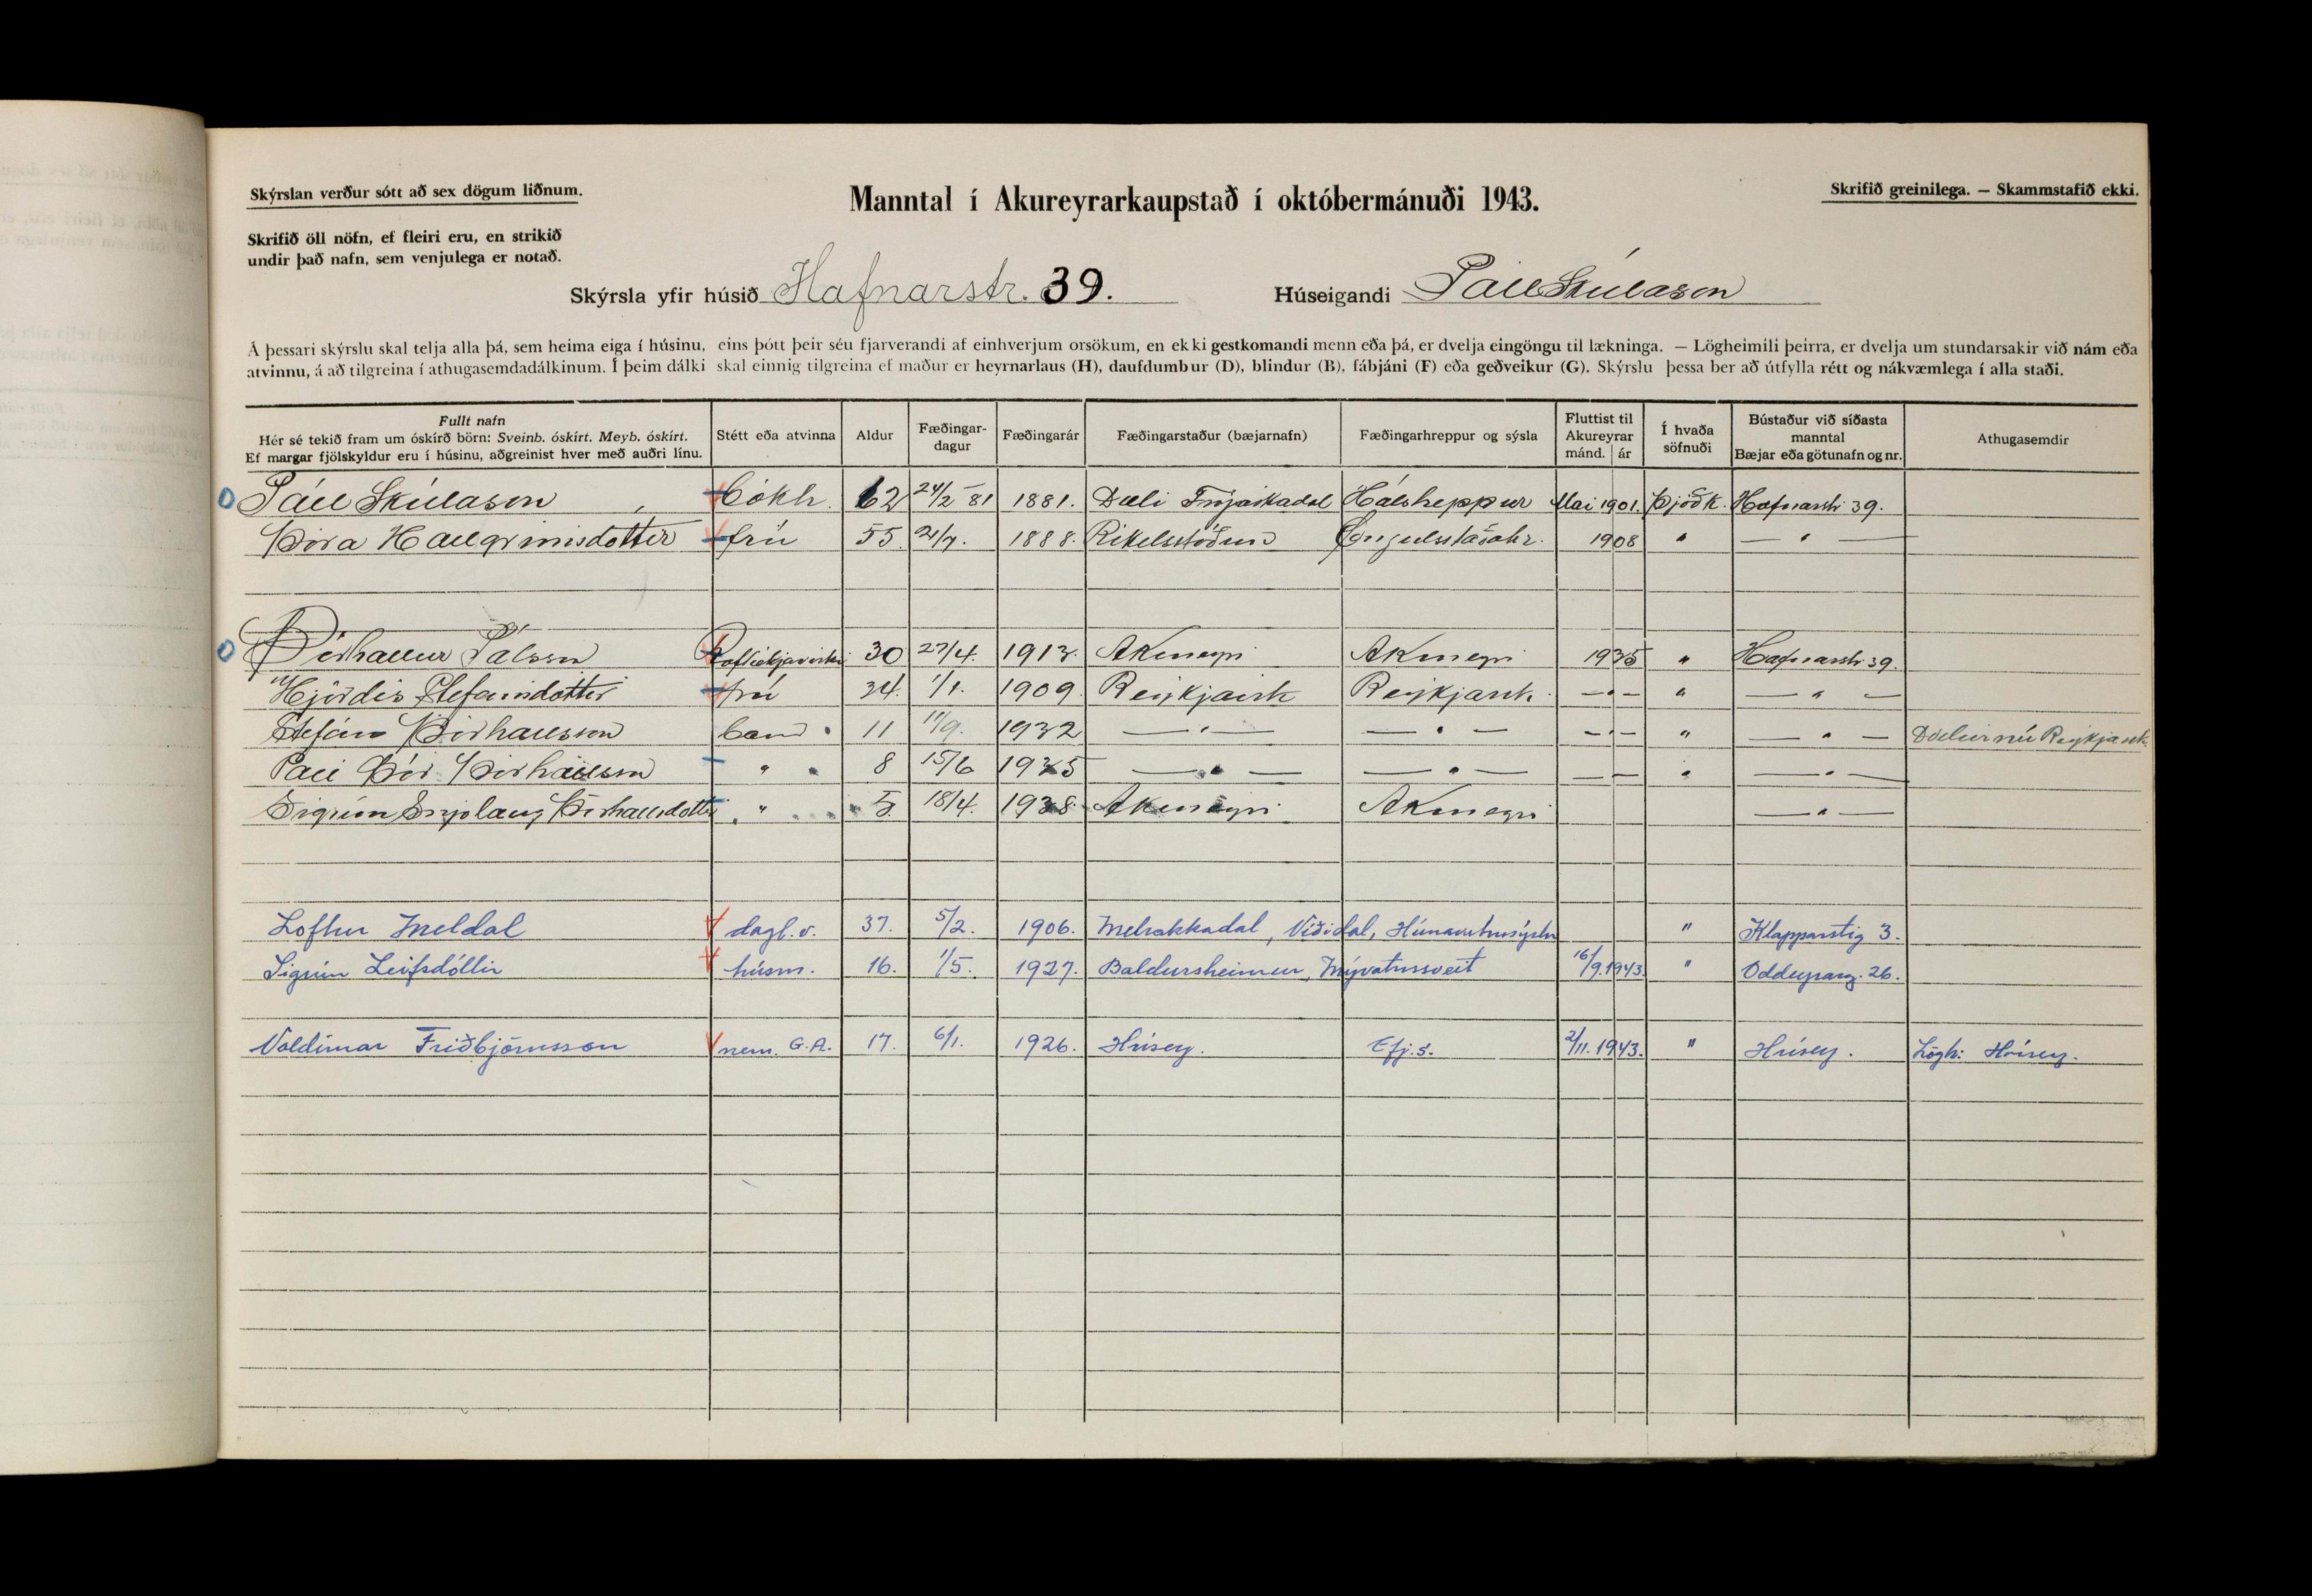 Skýrslan verður sótt að sex dögum liðnum.
Manntal í Akureyrarkaupstað í októbermánuði 1943.
Skrifið greinilega. — Skammstafið ekki.
Skrifið öll nöfn, ef fleiri eru, en strikið
undir það nafn, sem venjulega er notað.
Skýrsla yfir húsið Hafnarstr. 39. Húseigandi Páll Skúlason
Á þessari skýrslu skal telja alla þá, sem heima eiga í húsinu, eins þótt þeir séu fjarverandi af einhverjum orsökum, en ekki gestkomandi menn eða þá, er dvelja eingöngu til lækninga. — Lögheimili þeirra, er dvelja um stundarsakir við nám eða
atvinnu, á að tilgreina í athugasemdadálkinum. Í þeim dálki skal einnig tilgreina ef maður er heyrnarlaus (H), daufdumbur (D), blindur (B), fábjáni (F) eða geðveikur (G). Skýrslu þessa ber að útfylla rétt og nákvæmlega í alla staði.
Fullt nafn
Hér sé tekið fram um óskírð börn: Sveinb. óskírt. Meyb. óskírt.
Ef margar fjölskyldur eru í húsinu, aðgreinist hver með auðri línu.
Stétt eða atvinna
Aldur
Fæðingar-
dagur
Fæðingarár
Fæðingarstaður (bæjarnafn)
Fæðingarhreppur og sýsla
Fluttist til
Akureyrar
mánd. ár
Í hvaða
söfnuði
Bústaður við síðasta
manntal
Bæjar eða götunafn og nr.
Athugasemdir
Páll Skúlason bókh. 62 24/2 81 1881. Hálshreppur Mai 1901. Þjóðk. Hafnarstr 39.
Þóra Hallgrimsdottir frú 55. 21/7. 1888. Öngulsstaðahr. 1908 " — " —
Þórhallur Pálsson 30 27/4. 1913. Akureyri Akureyri 1935 " Hafnarstr 39.
Hjördis Stefansdottir frú 34. 1/1. 1909. Reykjavik Reykjavik. — " — " — " —
Stefán Þórhallsson barn 11 11/9. 1932 — " — — " — — " — " — " — Dvelur nú Reykjavik
Páll Þór Þórhallsson " 8 15/6 1935 — " — — " — — — " — " —
Sigrún Snjolaug Þórhallsdottir " 5. 18/4. 1938. Akureyri Akureyri — " —
Loftur Meldal dagl.v. 37. 5/2. 1906. Melrakkadal, Víðidal, Húnavatnssýslu " Klapparstig 3.
Sigrún Leifsdóttir húsm. 16. 1/5. 1927. Baldursheimur, Mývatnssveit 16/9. 1943. " Oddeyrarg. 26.
Valdimar Friðbjörnsson nem. G.A. 17. 6/1. 1926. Hrísey. Efj.s. 2/11. 1943. " Hrísey. Lögh: Hrísey.